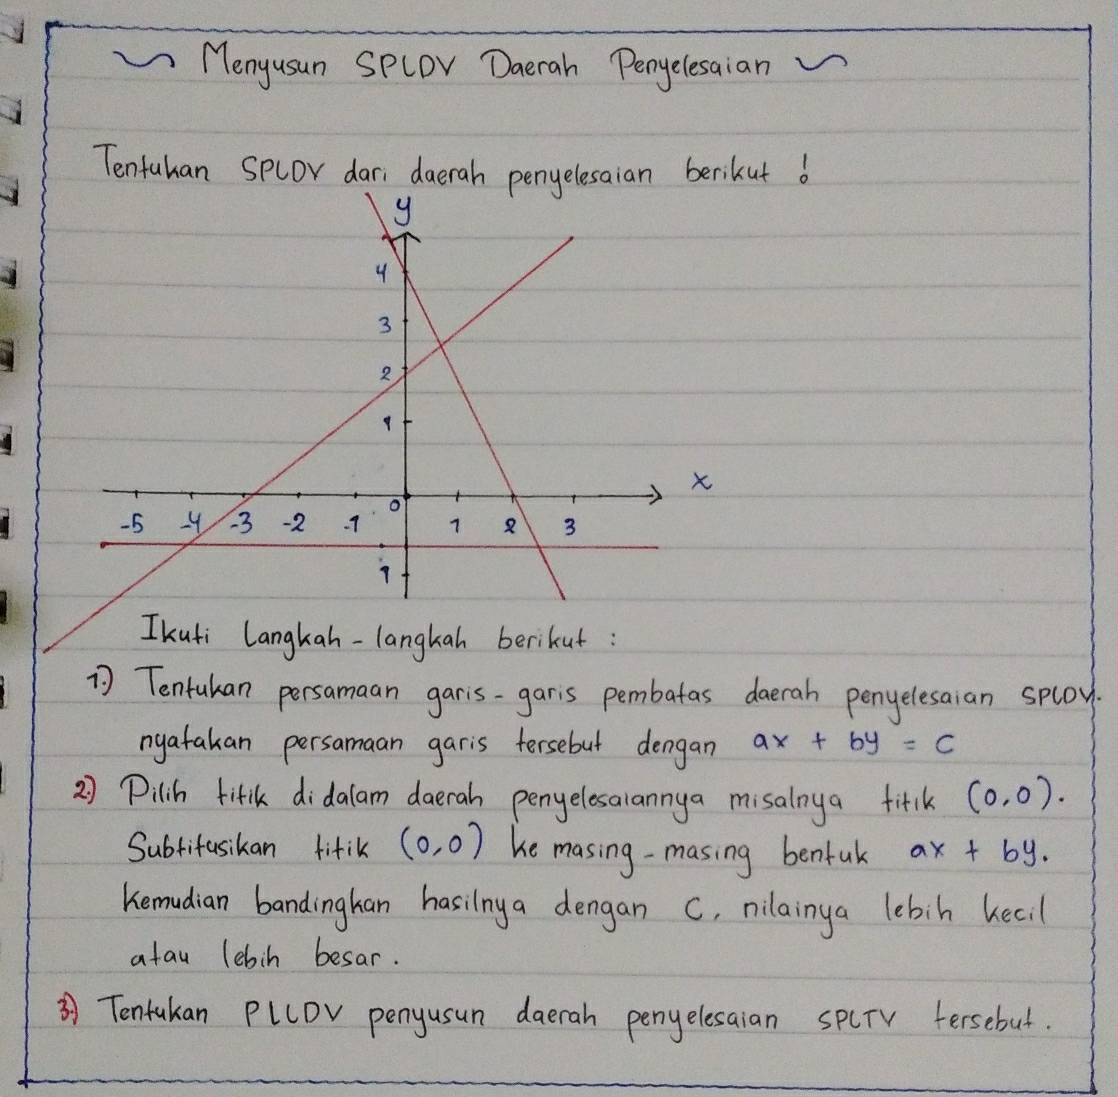 Menyusun SPLDV Daerah Penyelesaian
Tentukan SPLDV dari daerah penyelesaian berikut !
y
4
3
2
1
x
0
-5 -4 -3 -2 -1 1 2 3
1
Ikuti Langkah-langkah berikut :
1.) Tentukan persamaan garis-garis pembatas daerah penyelesaian SPLDV.
nyatakan persamaan garis tersebut dengan ax + by = c
2.) Pilih titik didalam daerah penyelesaiannya misalnya titik (0,0).
Subtitusikan titik (0,0) ke masing-masing bentuk ax + by.
Kemudian bandingkan hasilnya dengan C, nilainya lebih kecil
atau lebih besar.
3.) Tentukan PLLDV penyusun daerah penyelesaian SPLTV tersebut.